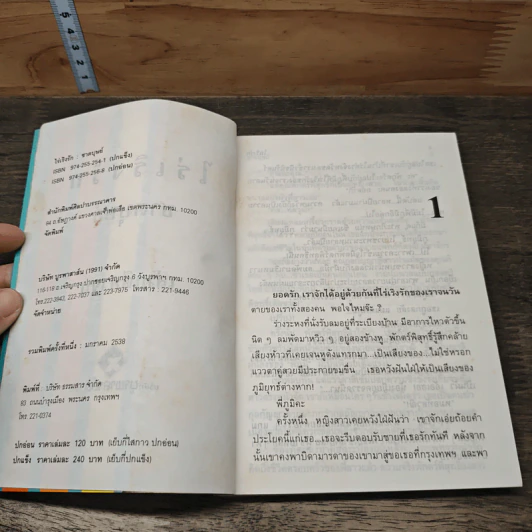 ไร่เริงรัก : ชาตบุษย์
ISBN 974-255-254-1 (ปกแข็ง)
ISBN 974-255-256-8 (ปกอ่อน)
สำนักพิมพ์ศิลปาบรรณาคาร
แขวงศาลเจ้าพ่อเสือ เขตพระนคร กทม. 10200
จัดพิมพ์
บริษัท บูรพาสาส์น (1991) จำกัด
ถ.เจริญกรุง ปากซอยเจริญกรุง 6 วังบูรพาฯ กทม. 10200
โทร. 222-3943, 222-7037 และ 223-7975 โทรสาร : 221-9446
จัดจำหน่าย
รวมพิมพ์ครั้งที่หนึ่ง : มกราคม 2538
พิมพ์ที่ : บริษัท ธรรมสาร จำกัด
83 ถนนบำรุงเมือง พระนคร กรุงเทพฯ
โทร 221-0374
ปกอ่อน ราคาเล่มละ 120 บาท (เย็บกี่ไสกาว ปกอ่อน)
ปกแข็ง ราคาเล่มละ 240 บาท (เย็บกี่ปกแข็ง)
1
ยอดรัก เราจักได้อยู่ด้วยกันที่ไร่เริงรักของเราจนวัน
ตายของเราทั้งสองคน พอใจไหมจ๊ะ ?
ร่างระหงที่นั่งริมลมอยู่ที่ระเบียงบ้าน มีอาการไหวตัวขึ้น
นิด ๆ ลมพัดมาหวิว ๆ อยู่สองข้างหู พักตร์พิสุทธิ์รู้สึกคล้าย
เสียงห้าวที่เคยเจนหูดังแทรกมา...เป็นเสียงของ...ไม่ใช่หรอก
แววตาคู่สวยมีประกายขมขื่น เธอหวังฝันใฝ่ให้เป็นเสียงของ
ภูมิยุทธ์ต่างหาก!
พี่ภูมิคะ
ครั้งหนึ่ง หญิงสาวเคยหวังใฝ่ฝันว่า เขาจักเอ่ยถ้อยคำ
ประโยคนี้แก่เธอ...เธอจะรีบตอบรับชายที่เธอรักทันที หลังจาก
นั้นเขาคงพาบิดามารดาของเขามาสู่ขอเธอที่กรุงเทพฯ และพา
5 4 3 2 1